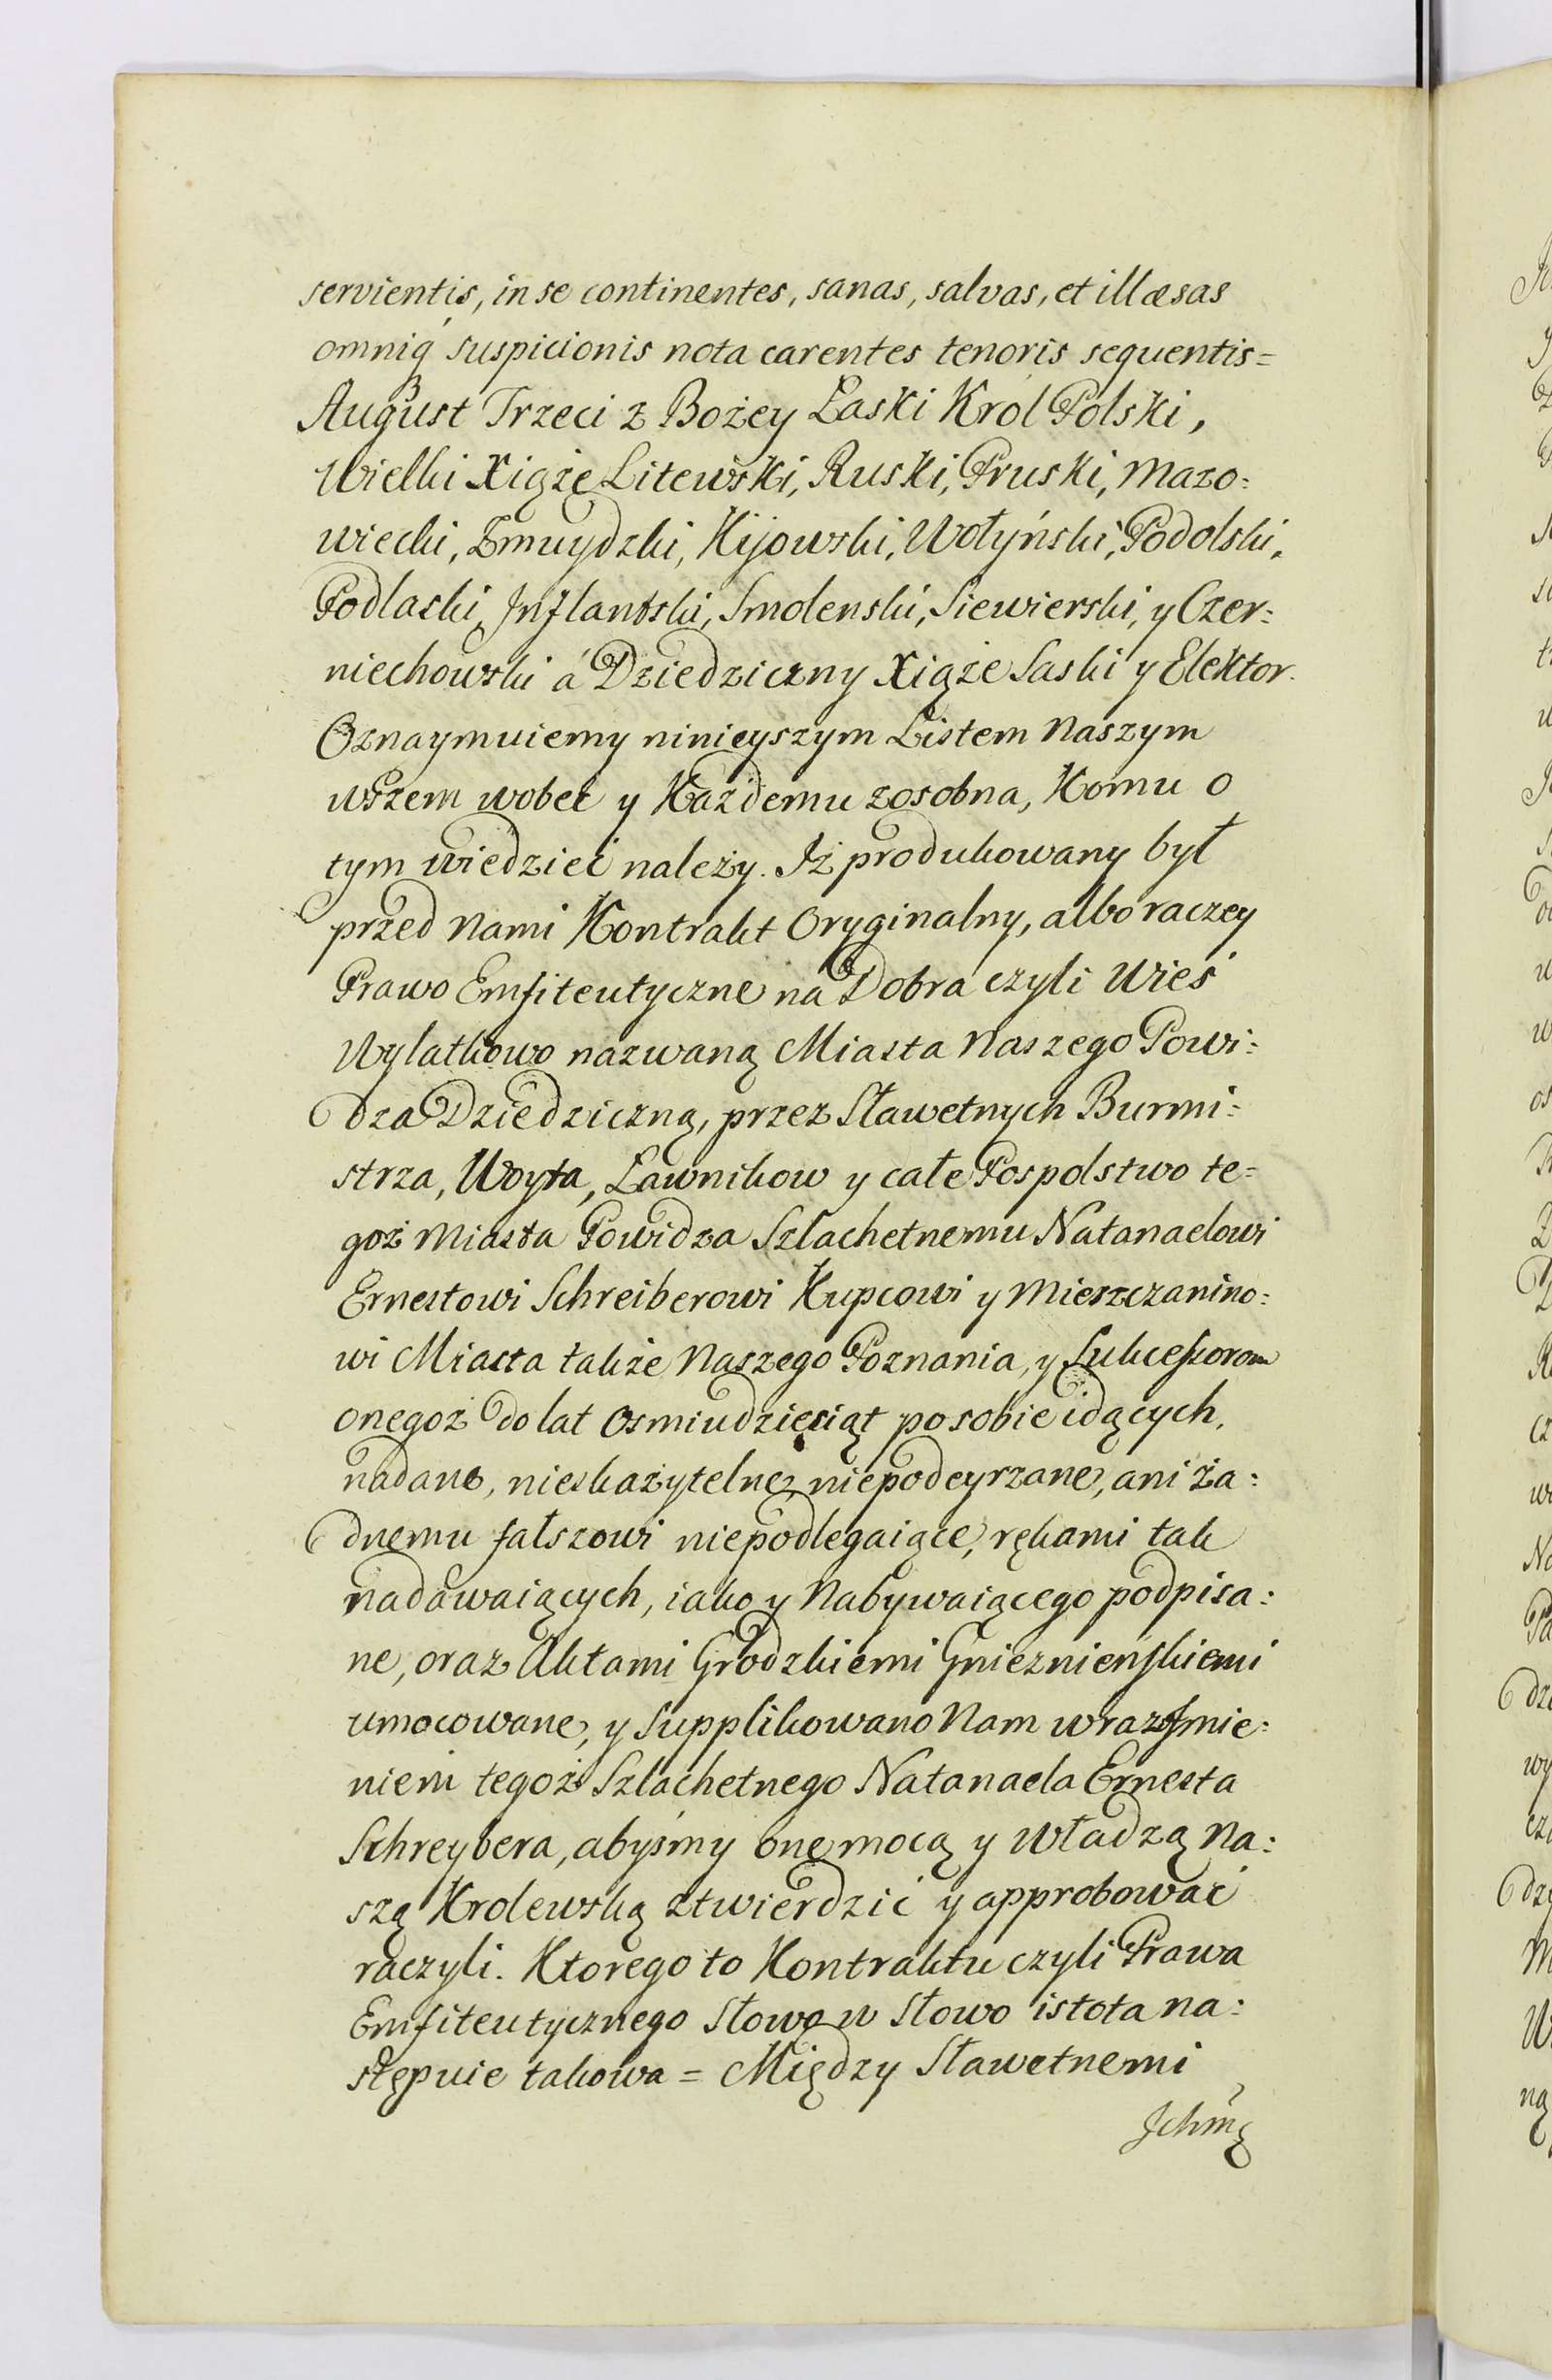 servientis, in se continentes, sanas, salvas, et illæsas
omniq́ꝫ suspicionis nota carentes tenoris sequentis=
August Trzeci z Bożey Łaski Krol Polski,
Wielki Xiąże Litewski, Ruski, Pruski, Mazo:
wiecki, Zmuydzki, Kijowski, Wołyński, Podolski,
Podlaski, Inflantski, Smolenski, Siewierski, y Czer:
niechowski á Dziedziczny Xiąże Saski y Elektor.
Oznaymuiemy ninieyszym Listem Naszym
wszem wobec y Każdemu zosobna, Komu o
tym wiedzieć należy. Iż produkowany był
przed Nami Kontrakt Oryginalny, albo raczey
Prawo Emfiteutyczne na Dobra czyli Wieś
Wylatkowo nazwaną Miasta Naszego Powi:
dza Dziedziczną, przez Sławetnych Burmi:
strza, Woyta, Ławnikow y całe Pospolstwo te=
goż Miasta Powidza Szlachetnemu Natanaelowi
Ernestowi Schreiberowi Kupcowi y Mieszczanino:
wi Miasta także Naszego Poznania, y Sukcessorom
onegoż do lat Osmiudziesiąt po sobie idących,
nadane, nieskażytelne, niepodeyrzane, ani ża:
dnemu fałszowi niepodlegaiące, rękami tak
nadawaiących, iako y Nabywaiącego podpisa:
ne, oraz Aktami Grodzkiemi Gnieznieńskiemi
umocowane, y Supplikowano Nam wraz Imie:
niem tegoż Szlachetnego Natanaela Ernesta
Schreybera, abyśmy one mocą y Władzą Na:
szą Krolewską ztwierdzić y approbować
raczyli. Ktorego to Kontraktu czyli Prawa
Emfiteutycznego Słowo w Słowo istota na:
stępuie takowa = Między Sławetnemi